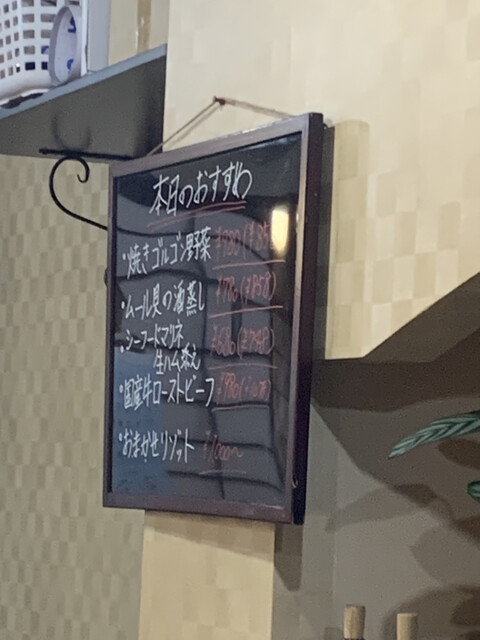 本日のおすすめ
・焼きゴルゴン野菜 ¥780(¥858)
・ムール貝の酒蒸し ¥780(¥858)
・シーフードマリネ
生ハム添え ¥680(¥748)
・国産牛ローストビーフ
・おまかせリゾット ¥1000〜